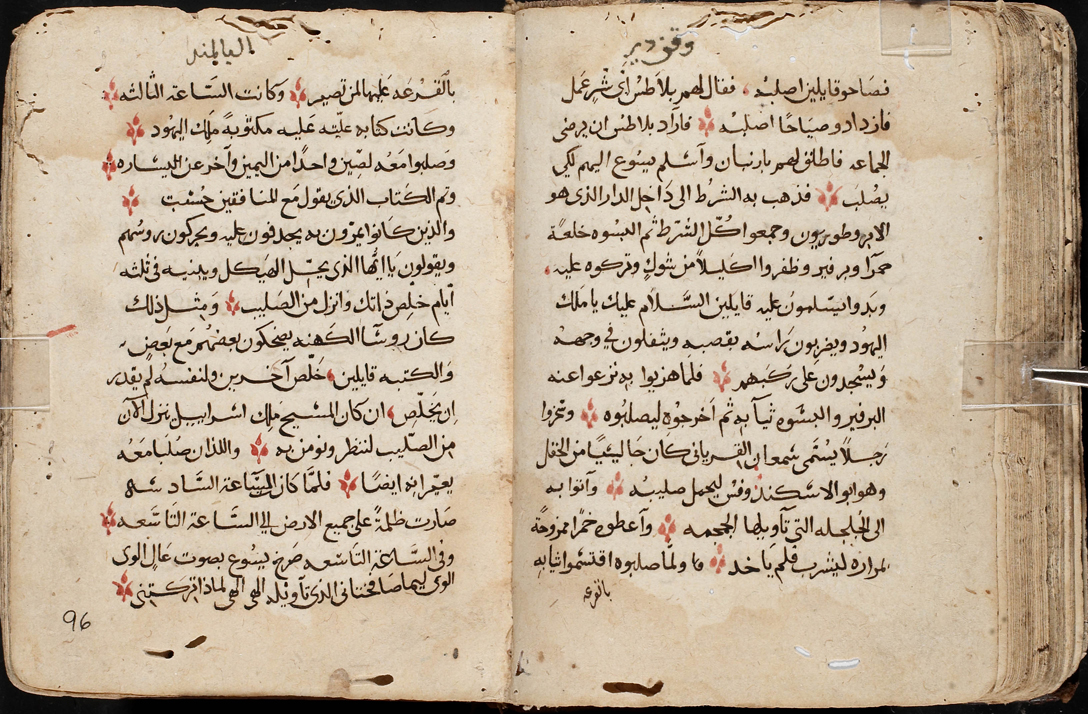 وقف دير
فصاحو قايلين اصلبه فقال لهم بلاطس اى شر عمل
فازدادو صياحا اصلبه فاراد بلاطس ان يرضى
الجماعه فاطلق لهم بارنبان وآسلم يسوع اليهم لكى
يصلب فذهب به الشرط الى داخل الدار الذى هو
الابروطوريون وجمعوا كل الشرط ثم البسوه خلعة
حمرآ وبرفير وظفروا اكليلا من شوك وتركوه عليه
وبدوا يسلمون عليه قايلين السلام عليك يا ملك
اليهود ويضربون راسه بقصبه ويتفلون فى وجهه
ويسجدون على ركبهم فلما هزيوا به نزعوا عنه
البرفير والبسوه ثيآبه ثم اخرجوه ليصلبوه وسخروا
رجلا يسمى شمعان القريانى كان جا ليئيا من الحقل
وهو ابو الاسكندر وفس ليحمل صليبه واتوا به
الى الجلجله التى تآويلها الجمجمه وآعطوه خمرا ممزوجة
بمراره ليشرب فلم ياخد ولما صلبوه اقتسموا ثيابه
بالقرعه
بالقرعه عليها لمن تصير وكانت الساعة الثالثه
وكانت كتابه علته عليه مكتوبة ملك اليهود
وصلبوا معه لصين واحدا من اليمين وآخر عن اليساره
وتم الكتاب الذى يقول مع المنافقين حسب
والذين كانوا يمرون به يجدفون عليه ويحركون روسهم
ويقولون يا ايها الذى يحل الهيكل ويبنيه فى ثلثه
ايام خلص ذاتك وانزل من الصليب ومثل ذلك
كان روسآ الكهنه يضحكون بعضهم مع بعض
والكتبه قايلين خلص آخرين ولنفسه لم يقدر
ان يخلص ان كان المسيح ملك اسراييل ينزل الآن
من الصليب لننظر ونومن به واللذان صلبا معه
يعيرانه ايضا فلما كان الساعة السادسه
صارت ظلمة على جميع الارض الى الساعة التاسعه
وفى الساعة التاسعه صرخ يسوع بصوت عال الوى
الوى ليما صافختانى الذى تآويله الهى الهى لماذا تركتنى
96